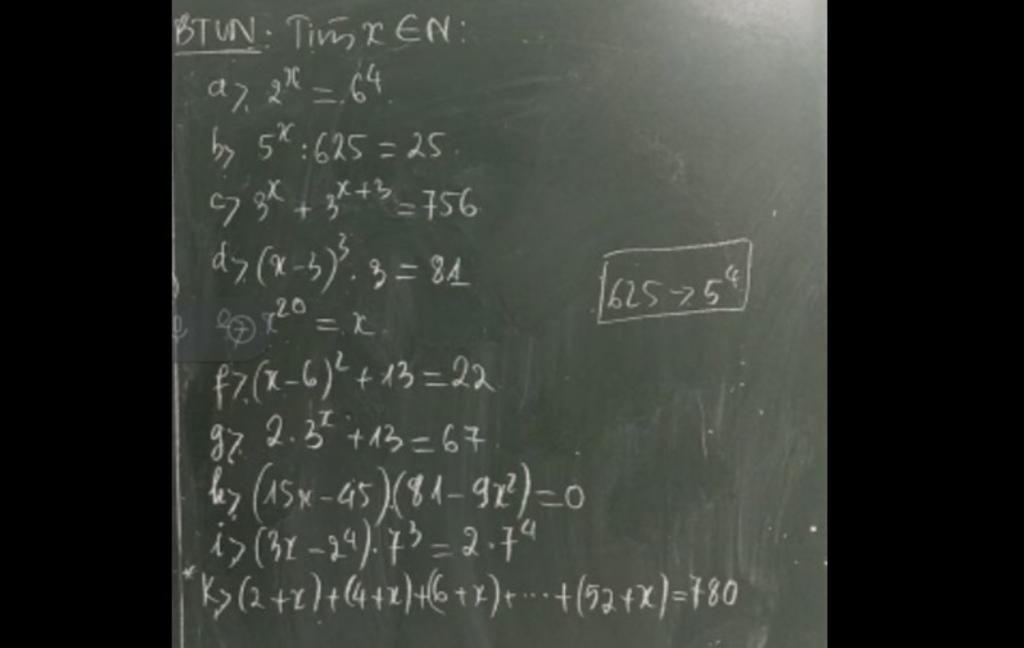 BTVN: Tìm x ∈ N:
a> 2^x = 64.
b> 5^x : 625 = 25.
c> 3^x + 3^{x+3} = 756
d> (x-3)^3 . 3 = 81
625 → 5^4
e> x^20 = x.
f> (x-6)^2 + 13 = 22
g> 2.3^x + 13 = 67.
h> (15x - 45)(81 - 9x^2) = 0
i> (3x - 2^4).7^3 = 2.7^4
* K> (2+x)+(4+x)+(6+x)+...+(52+x)=780